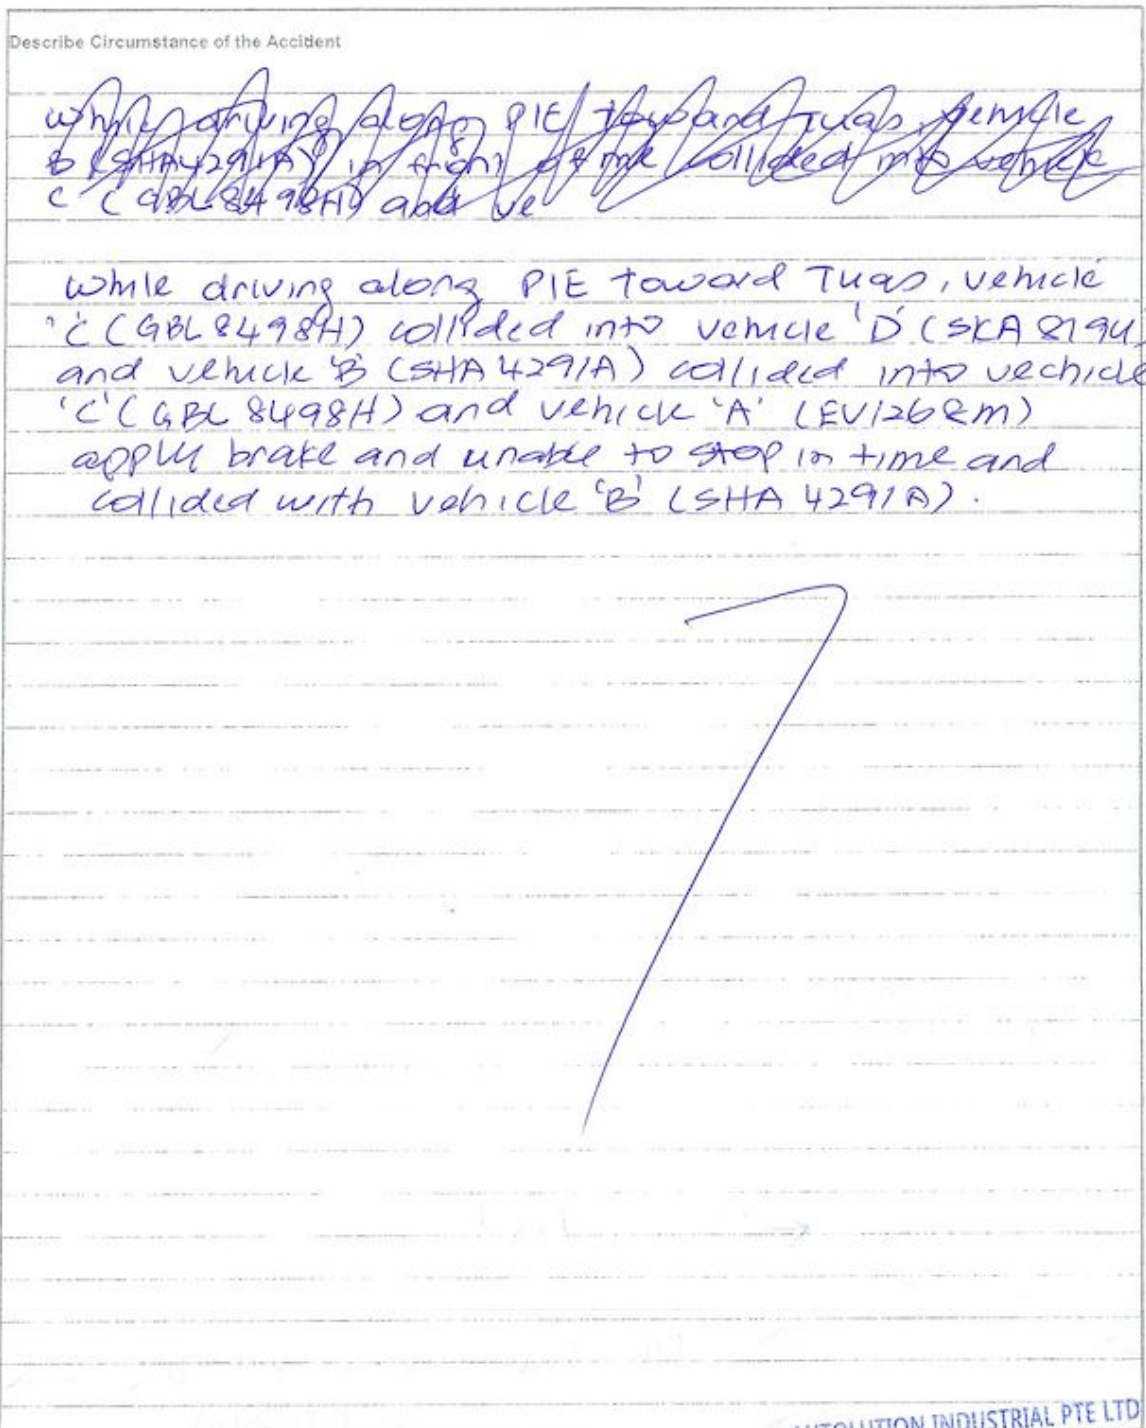 Describe Circumstance of the Accident
while driving along PIE toward Tuas, vehicle
B (SHA4291A) in front of me collided into vehicle
C (GBL8498H) and ve
while driving along PIE toward Tuas, vehicle
'C' (GBL8498H) collided into vehicle 'D' (SKA 8194
and vehicle 'B' (SHA4291A) collided into vechicle
'C' (GBL 8498H) and vehicle 'A' (EV1268M)
apply brake and unable to stop in time and
collided with vehicle 'B' (SHA 4291A).
AUTOLUTION INDUSTRIAL PTE LTD